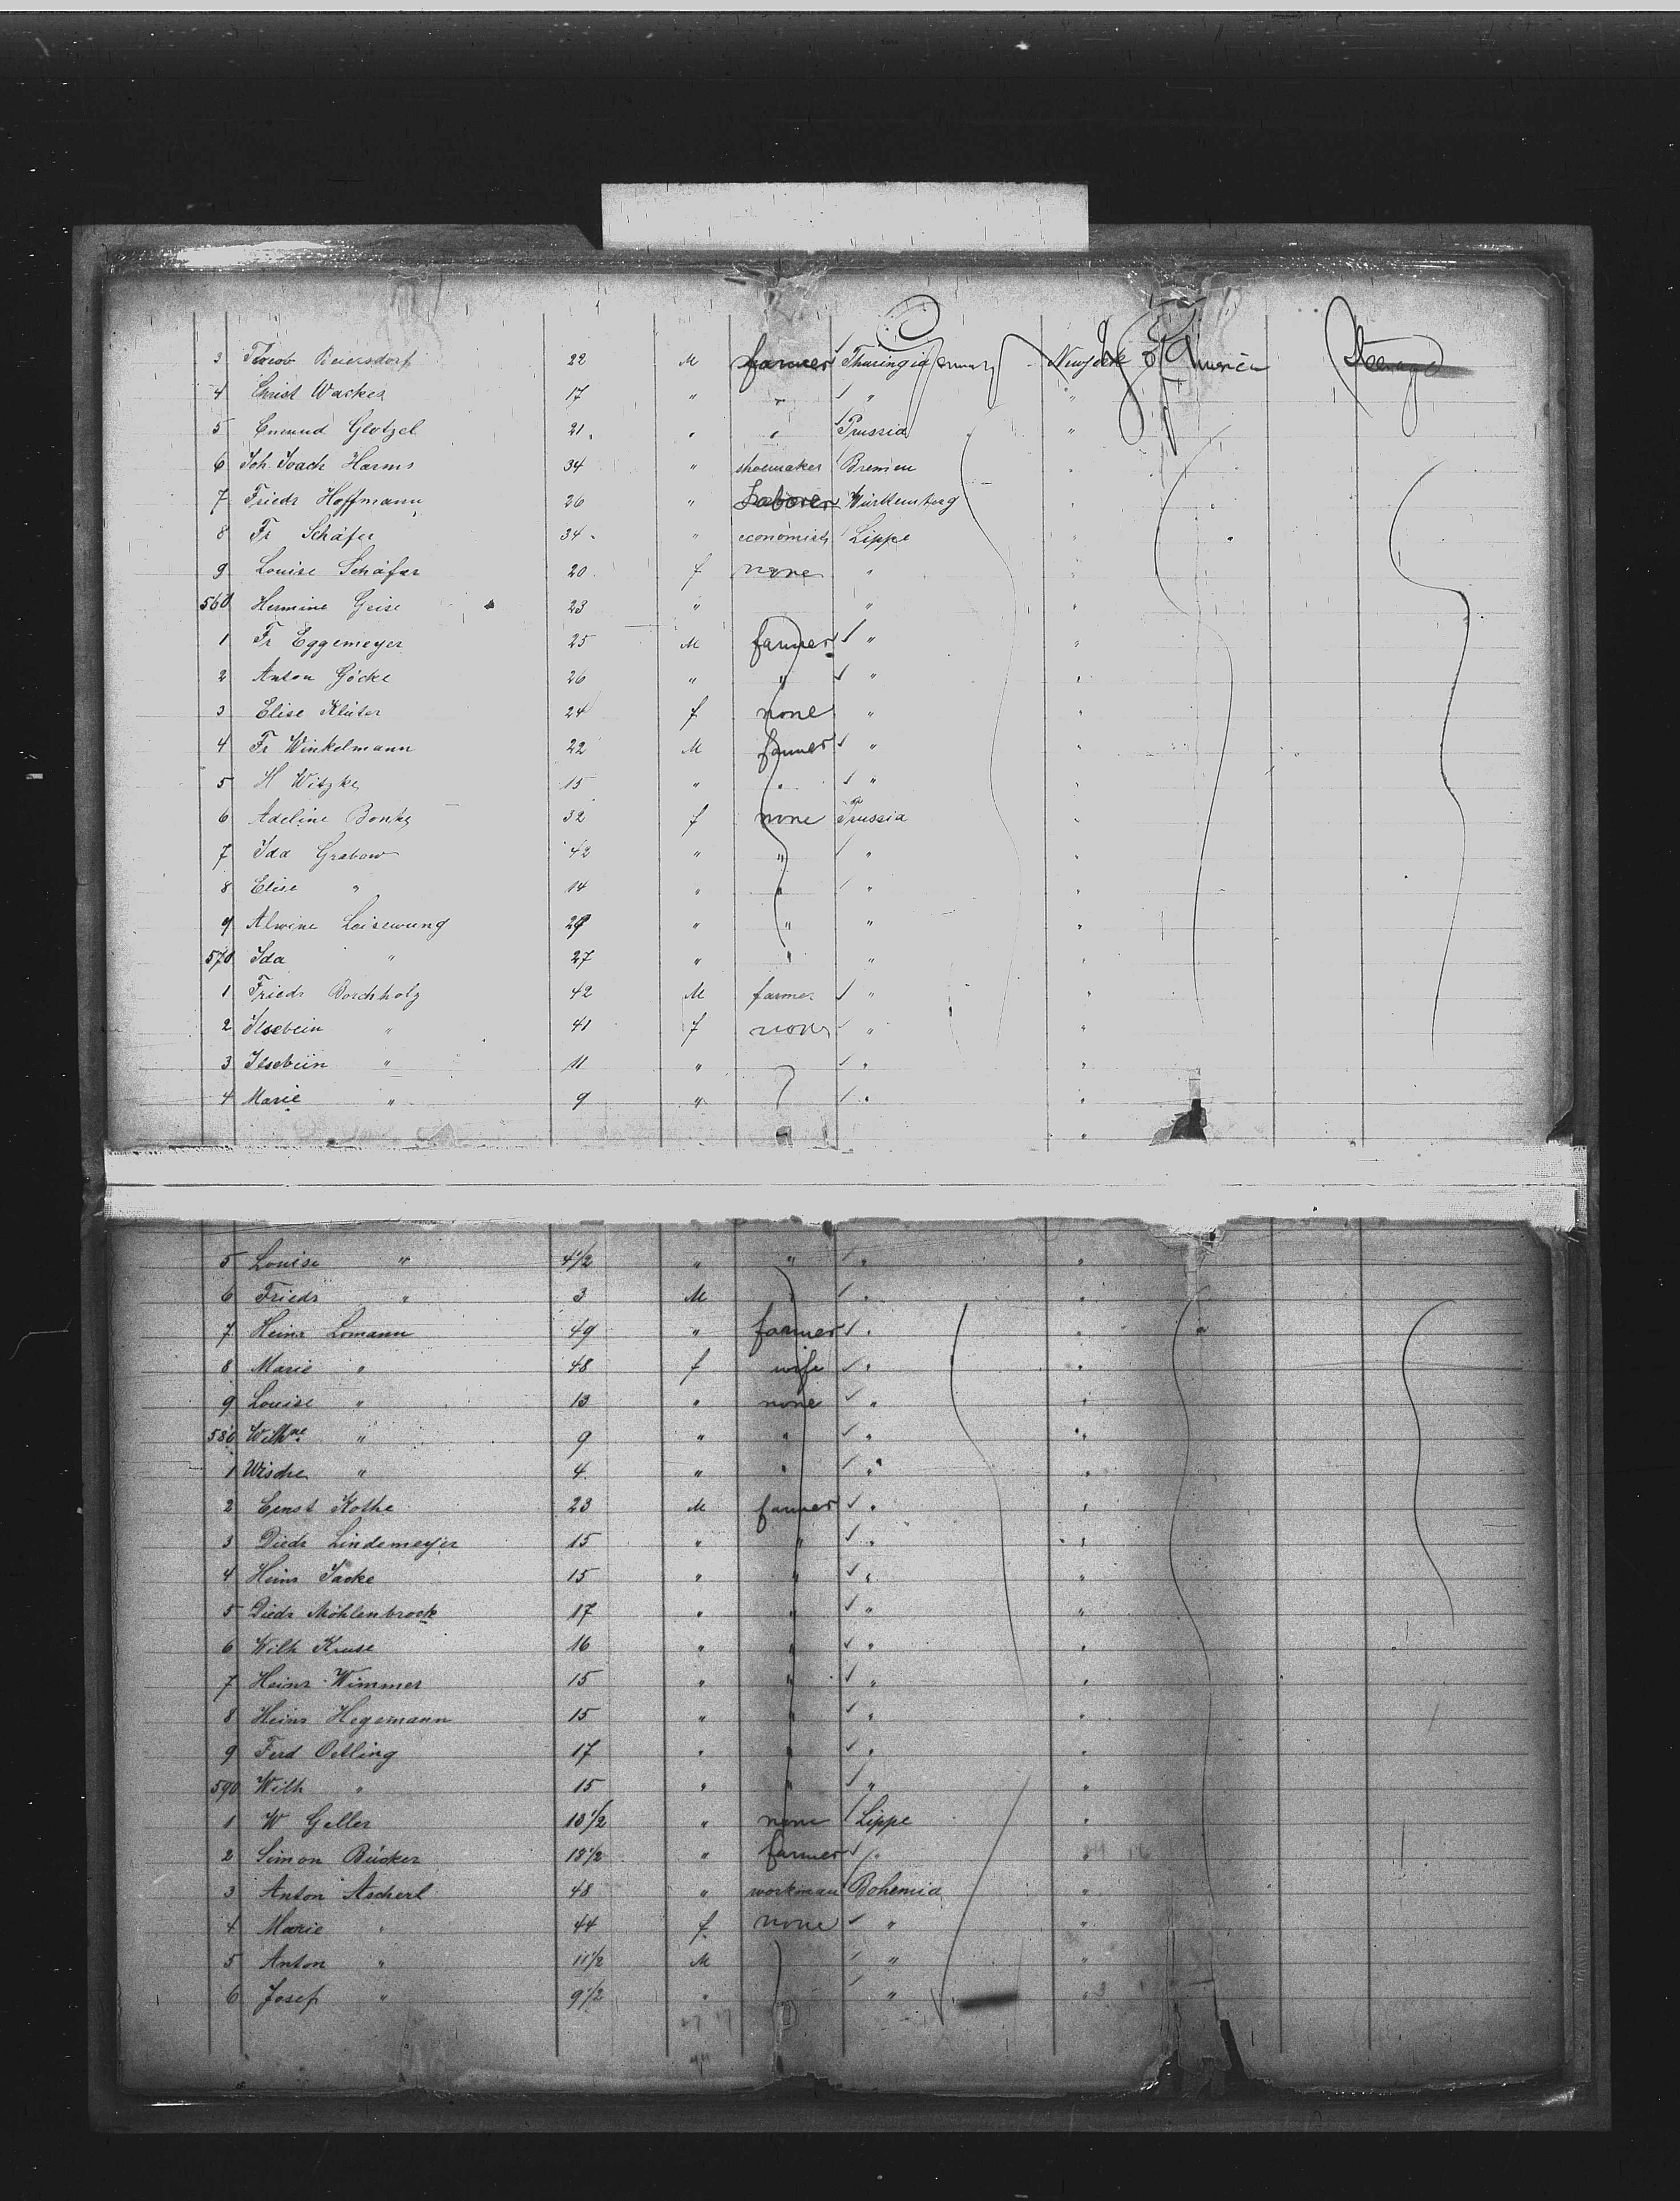 3 Jacob Beiersdorf 22 M farmer Thuringia Germany New York U S of America Steerage
4 Christ Wacker 17 " " "
5 Emund Glotzel 21 " " Prussia "
6 Joh. Joach Harms 34 " shoemaker Bremen "
7 Friedr Hoffmann 26 " Laborer Württemberg "
8 Fr Schäfer 34 " economist Lippe "
9 Louise Schäfer 20 f none " "
560 Hermine Geise 23 " " "
1 Fr Eggemeyer 25 M farmer " "
2 Anton Göcke 26 " " " "
3 Elise Klüter 24 f none " "
4 Fr Winkelmann 22 M farmer " "
5 H Witzke 15 " " " "
6 Adeline Bonke 32 f none Prussia "
7 Ida Grabow 42 " " " "
8 Elise " 14 " " " "
9 Alwine Loisewung 29 " " " "
570 Ida " 27 " " " "
1 Friedr Borchholz 42 M farmer " "
2 Ilsebein " 41 f none " "
3 Ilsebein " 11 " " "
4 Marie " 9 " " "
5 Louise " 4 1/2 " " " "
6 Friedr " 3 M " "
7 Heinr Lomann 49 " farmer " "
8 Marie " 48 f wife " "
9 Louise " 13 " none " "
580 Wilhne " 9 " " " "
1 Wische " 4 " " " "
2 Ernst Kothe 23 M farmer " "
3 Diedr Lindemeyer 15 " " " "
4 Heinr Jacke 15 " " " "
5 Diedr Möhlenbrock 17 " " " "
6 Wilh Kruse 16 " " " "
7 Heinr Wimmer 15 " " " "
8 Heinr Hegemann 15 " " " "
9 Ferd Oetling 17 " " " "
590 Wilh " 15 " " " "
1 W Geller 18 1/2 " none Lippe "
2 Simon Bücker 18 1/2 " farmer " "
3 Anton Ascherl 48 " workman Bohemia "
4 Marie " 44 f none " "
5 Anton " 11 1/2 M " "
6 Josef " 9 1/2 " " "